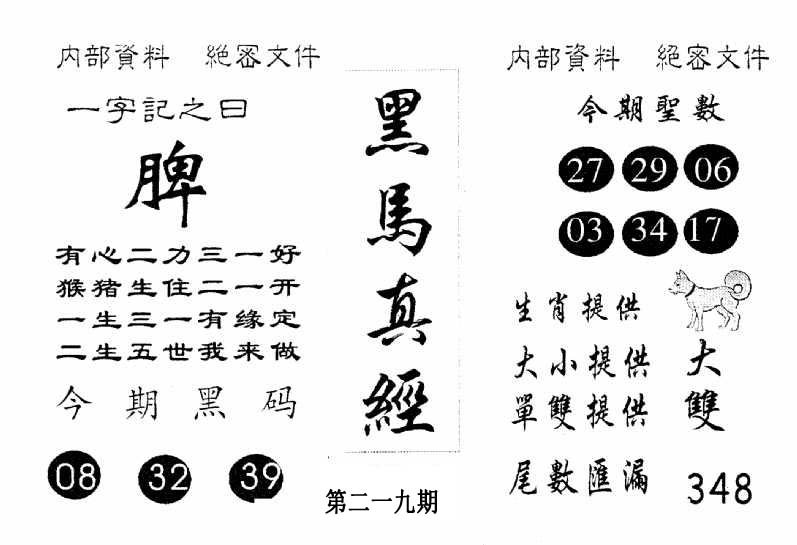 内部資料 絕密文件
一字記之曰
脾
有心二力三一好
猴猪生住二一开
一生三一有缘定
二生五世我来做
今期黑码
08 32 39
黑馬真經
第二一九期
内部資料 絕密文件
今期聖數
27 29 06
03 34 17
生肖提供
大小提供 大
單雙提供 雙
尾數匯漏 348